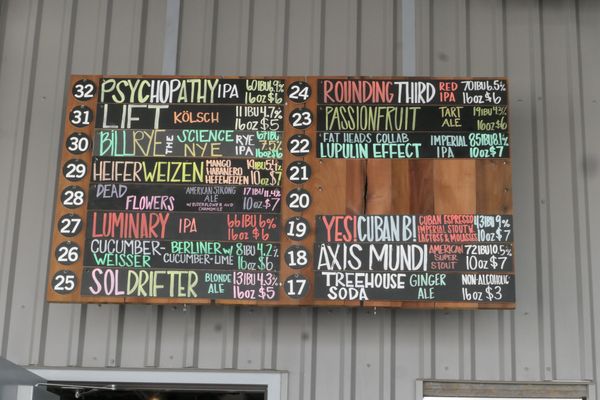 32 PSYCHOPATHY IPA 69 IBU 6.9%
16oz $6
31 LIFT KÖLSCH 11 IBU 4.7%
16oz $5
30 BILL RYE THE SCIENCE NYE RYE IPA 67 IBU 7.5%
16oz $6
29 HEIFERWEIZEN MANGO HABANERO HEFEWEIZEN 5.4%
10oz $7
28 DEAD FLOWERS AMERICAN STRONG ALE W/ ELDERFLOWER AND CHAMOMILE 17 IBU 11.4%
10oz $7
27 LUMINARY IPA 66 IBU 6%
16oz $6
26 CUCUMBER-WEISSER BERLINER W/ CUCUMBER-LIME 8 IBU 4.2%
16oz $6
25 SOL DRIFTER BLONDE ALE 13 IBU 4.3%
16oz $5
24 ROUNDING THIRD RED IPA 70 IBU 6.5%
16oz $6
23 PASSIONFRUIT TART ALE 19 IBU 4.3%
16oz $6
22 FAT HEADS COLLAB
LUPULIN EFFECT IMPERIAL IPA 85 IBU 8.1%
10oz $7
21
20
19 YES! CUBAN B! CUBAN ESPRESSO IMPERIAL STOUT W. LACTOSE & MOLASSES 43 IBU 9%
10oz $7
18 AXIS MUNDI AMERICAN SUPER STOUT 72 IBU 10.5%
10oz $7
17 TREEHOUSE SODA GINGER ALE NON-ALCOHOLIC
16oz $3